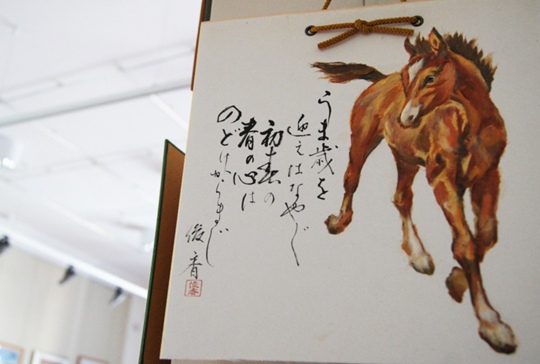 うま歳を
迎えはなやぐ
初春の
春の心は
のどけからまじ
俊香